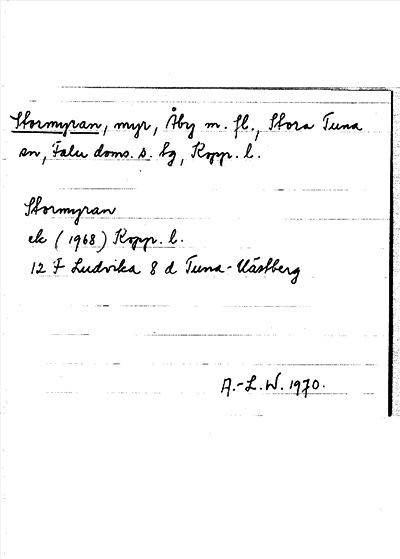 Stormyran, myr, Åby m. fl., Stora Tuna
sn, Falu doms. s. tg, Kopp. l.
Stormyran
ek (1968) Kopp. l.
12 F Ludvika 8 d Tuna-Västberg
A.-L. W. 1970.